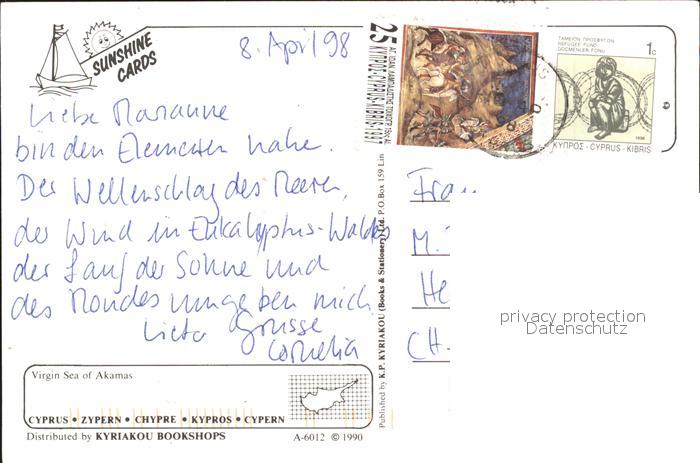 SUNSHINE
CARDS
8. April 98
Liebe Marianne
bin den Elementen nahe.
Der Wellenschlag des Meeres,
der Wind in Eukalyptus-Waldes
der Lauf der Sonne und
des Mondes umgeben mich.
Liebe Grüsse
Cornelia
25
ΚΥΠΡΟΣ-CYPRUS-KIBRIS 1997
ΤΑΜΕΙΟΝ ΠΡΟΣΦΥΓΩΝ
REFUGEE FUND
GÖÇMENLER FONU
1c
1996
ΚΥΠΡΟΣ - CYPRUS - KIBRIS
Frau
M.
He
CH-
privacy protection
Datenschutz
Published by K.P. KYRIAKOU (Books & Stationery) Ltd. P.O.Box 159 Lim
Virgin Sea of Akamas
CYPRUS • ZYPERN • CHYPRE • KYPROS • CYPERN
Distributed by KYRIAKOU BOOKSHOPS A-6012 © 1990